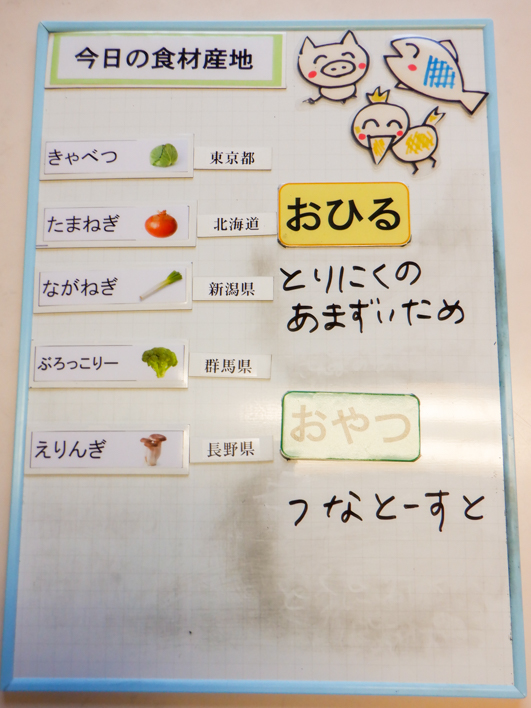 今日の食材産地
きゃべつ 東京都
たまねぎ 北海道
ながねぎ 新潟県
ぶろっこりー 群馬県
えりんぎ 長野県
おひる
とりにくの
あまずいため
おやつ
つなとーすと